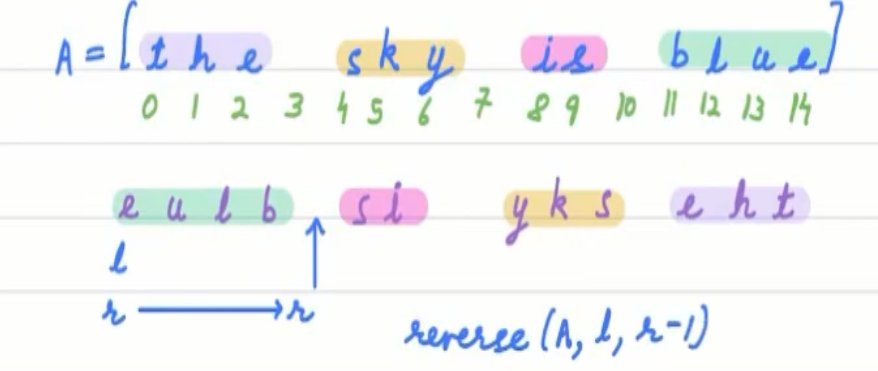 A = [ t h e   s k y   i s   b l u e ]
0 1 2 3 4 5 6 7 8 9 10 11 12 13 14
e u l b   s i   y k s   e h t
l
r → r
reverse (A, l, r-1)